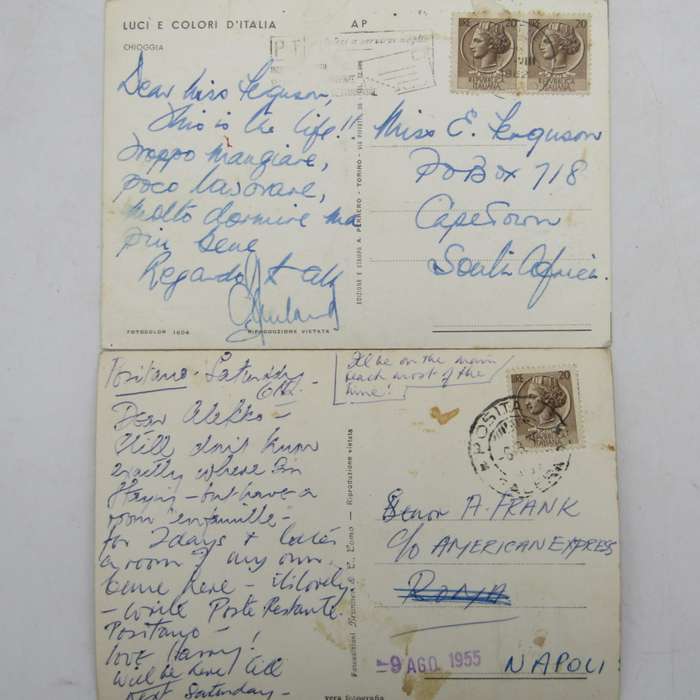 LUCI E COLORI D'ITALIA
AP
CHIOGGIA
Dear Miss Ferguson,
This is the life!!
troppo mangiare,
poco lavorare,
molto dormire ma
piu bene
Regards to all
FOTOCOLOR 1604
RIPRODUZIONE VIETATA
EDIZIONE E STAMPA A. PERRERO - TORINO
LIRE 20
20
REPUBBLICA ITALIANA
Miss E. Ferguson
PO Box 718
Cape Town
South Africa.
Positano - Saturday
I'll be on the main
beach most of the
time!
Dear Alekko -
Still don't know
exactly where I'm
staying - but have a
room "en famille" -
for 2 days & later
a room of my own.
Came here - it's lovely
- write Poste Restante
Positano -
love Harry!
Will be here till
next Saturday -
Riproduzione vietata
vera fotografia
LIRE 20
POSITANO
Senor A. FRANK
C/O AMERICAN EXPRESS
ROMA
NAPOLI
-9 AGO. 1955